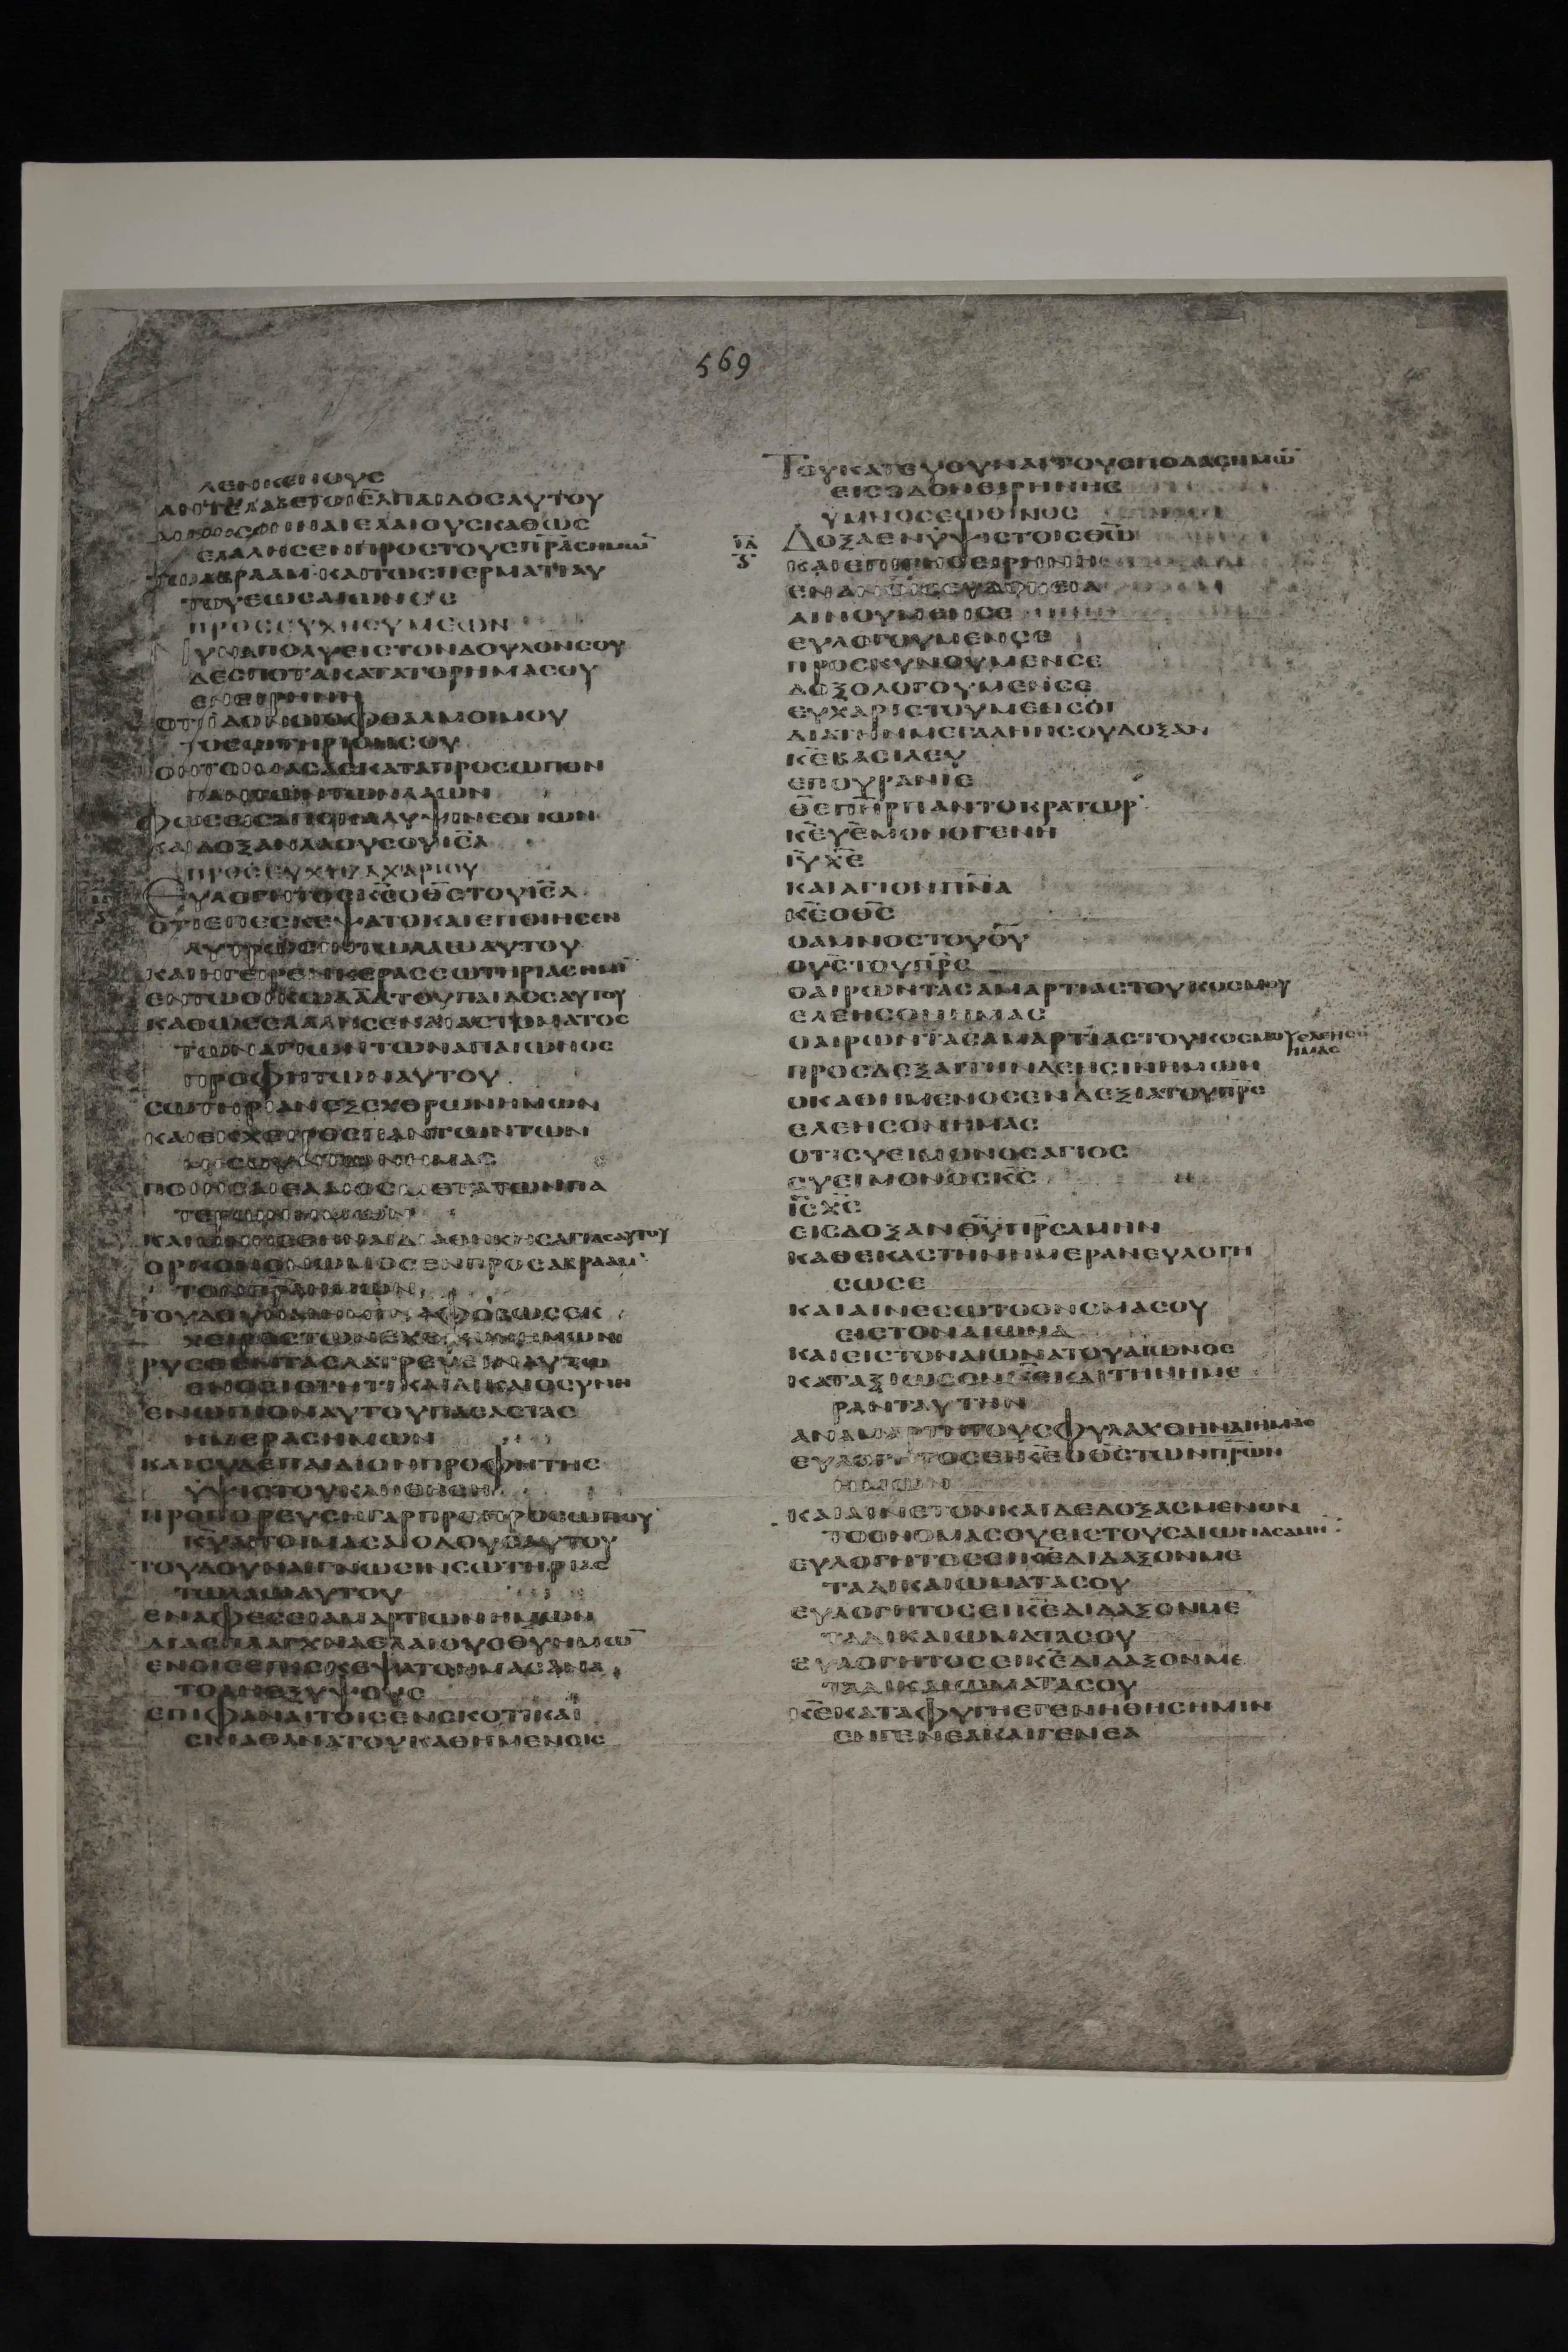 569
ΛΕΝΚΕΝΟΥϹ
ΑΝΤΕΛΑΒΕΤΟΙΗ̅Λ̅ΠΑΙΔΟϹΑΥΤΟΥ
ΕΛΑΙΟΥϹΚΑΘΩϹ
ΕΛΑΛΗϹΕΝΠΡΟϹΤΟΥϹΠ̅Ρ̅Α̅Ϲ̅ΗΜΩ̅
ΤΩΑΒΡΑΑΜ·ΚΑΙΤΩϹΠΕΡΜΑΤΙΑΥ
ΤΟΥΕΩϹΑΙΩΝΟϹ
ΠΡΟϹΕΥΧΗϹΥΜΕΩΝ
ΝΥΝΑΠΟΛΥΕΙϹΤΟΝΔΟΥΛΟΝϹΟΥ
ΔΕϹΠΟΤΑΚΑΤΑΤΟΡΗΜΑϹΟΥ
ΕΝΕΙΡΗΝΗ
ΟΤΙΙΔΟΝΟΙΟΦΘΑΛΜΟΙΜΟΥ
ΤΟϹΩΤΗΡΙΟΝϹΟΥ
ΟΗΤΟΙΜΑϹΑϹΚΑΤΑΠΡΟϹΩΠΟΝ
ΠΑΝΤΩΝΤΩΝΛΑΩΝ
ΦΩϹΕΙϹΑΠΟΚΑΛΥΨΙΝΕΘΝΩΝ
ΚΑΙΔΟΞΑΝΛΑΟΥϹΟΥΙϹ̅Λ̅
ΠΡΟϹΕΥΧΗΖΑΧΑΡΙΟΥ
ΕΥΛΟΓΗΤΟϹΚ̅Ϲ̅ΟΘ̅Ϲ̅ΤΟΥΙϹ̅Λ̅
ΟΤΙΕΠΕϹΚΕΨΑΤΟΚΑΙΕΠΟΙΗϹΕΝ
ΛΥΤΡΩϹΙΝΤΩΛΑΩΑΥΤΟΥ
ΚΑΙΗΓΕΙΡΕΝΚΕΡΑϹϹΩΤΗΡΙΑϹΗΜΙΝ
ΕΝΤΩΟΙΚΩΔ̅Α̅Δ̅ΤΟΥΠΑΙΔΟϹΑΥΤΟΥ
ΚΑΘΩϹΕΛΑΛΗϹΕΝΔΙΑϹΤΟΜΑΤΟϹ
ΤΩΝΑΓΙΩΝΤΩΝΑΠΑΙΩΝΟϹ
ΠΡΟΦΗΤΩΝΑΥΤΟΥ
ϹΩΤΗΡΙΑΝΕΞΕΧΘΡΩΝΗΜΩΝ
ΚΑΙΕΚΧΕΙΡΟϹΠΑΝΤΩΝΤΩΝ
ΜΙϹΟΥΝΤΩΝΗΜΑϹ
ΠΟΙΗϹΑΙΕΛΕΟϹΜΕΤΑΤΩΝΠΑ
ΤΕΡΩΝΗΜΩΝ
ΚΑΙΜΝΗϹΘΗΝΑΙΔΙΑΘΗΚΗϹΑΓΙΑϹΑΥΤΟΥ
ΟΡΚΟΝΟΝΩΜΟϹΕΝΠΡΟϹΑΒΡΑΑΜ
ΤΟΝΠ̅Ρ̅Α̅ΗΜΩΝ
ΤΟΥΔΟΥΝΑΙΗΜΙΝΑΦΟΒΩϹΕΚ
ΧΕΙΡΟϹΤΩΝΕΧΘΡΩΝΗΜΩΝ
ΡΥϹΘΕΝΤΑϹΛΑΤΡΕΥΕΙΝΑΥΤΩ
ΕΝΟϹΙΟΤΗΤΙΚΑΙΔΙΚΑΙΟϹΥΝΗ
ΕΝΩΠΙΟΝΑΥΤΟΥΠΑϹΑϹΤΑϹ
ΗΜΕΡΑϹΗΜΩΝ
ΚΑΙϹΥΔΕΠΑΙΔΙΟΝΠΡΟΦΗΤΗϹ
ΥΨΙϹΤΟΥΚΛΗΘΗϹΗ
ΠΡΟΠΟΡΕΥϹΗΓΑΡΠΡΟΠΡΟϹΩΠΟΥ
Κ̅Υ̅ΕΤΟΙΜΑϹΑΙΟΔΟΥϹΑΥΤΟΥ
ΤΟΥΔΟΥΝΑΙΓΝΩϹΙΝϹΩΤΗΡΙΑϹ
ΤΩΛΑΩΑΥΤΟΥ
ΕΝΑΦΕϹΕΙΑΜΑΡΤΙΩΝΗΜΩΝ
ΔΙΑϹΠΛΑΓΧΝΑΕΛΑΙΟΥϹΘ̅Υ̅ΗΜΩ̅
ΕΝΟΙϹΕΠΕϹΚΕΨΑΤΟΗΜΑϹΑΝΑ
ΤΟΛΗΕΞΥΨΟΥϹ
ΕΠΙΦΑΝΑΙΤΟΙϹΕΝϹΚΟΤΙΚΑΙ
ϹΚΙΑΘΑΝΑΤΟΥΚΑΘΗΜΕΝΟΙϹ
ΤΟΥΚΑΤΕΥΘΥΝΑΙΤΟΥϹΠΟΔΑϹΗΜΩ̅
ΕΙϹΟΔΟΝΕΙΡΗΝΗϹ
ΥΜΝΟϹΕΩΘΙΝΟϹ
ΙΔ
ΔΟΞΑΕΝΥΨΙϹΤΟΙϹΘ̅Ω̅
ΚΑΙΕΠΙΓΗϹΕΙΡΗΝΗ
ΕΝΑΝ̅Ο̅Ι̅Ϲ̅ΕΥΔΟΚΕΙΑ
ΑΙΝΟΥΜΕΝϹΕ
ΕΥΛΟΓΟΥΜΕΝϹΕ
ΠΡΟϹΚΥΝΟΥΜΕΝϹΕ
ΔΟΞΟΛΟΓΟΥΜΕΝϹΕ
ΕΥΧΑΡΙϹΤΟΥΜΕΝϹΟΙ
ΔΙΑΤΗΝΜΕΓΑΛΗΝϹΟΥΔΟΞΑΝ
Κ̅Ε̅ΒΑϹΙΛΕΥ
ΕΠΟΥΡΑΝΙΕ
Θ̅Ε̅Π̅Η̅Ρ̅ΠΑΝΤΟΚΡΑΤΩΡ
Κ̅Ε̅Υ̅Ε̅ΜΟΝΟΓΕΝΗ
Ι̅Υ̅Χ̅Ε̅
ΚΑΙΑΓΙΟΝΠ̅Ν̅Α̅
Κ̅Ε̅ΟΘ̅Ϲ̅
ΟΑΜΝΟϹΤΟΥΘ̅Υ̅
ΟΥ̅Ϲ̅ΤΟΥΠ̅Ρ̅Ϲ̅
ΟΑΙΡΩΝΤΑϹΑΜΑΡΤΙΑϹΤΟΥΚΟϹΜΟΥ
ΕΛΕΗϹΟΝΗΜΑϹ
ΟΑΙΡΩΝΤΑϹΑΜΑΡΤΙΑϹΤΟΥΚΟϹΜΟΥΕΛΕΗϹΟΝ
ΗΜΑϹ
ΠΡΟϹΔΕΞΑΙΤΗΝΔΕΗϹΙΝΗΜΩΝ
ΟΚΑΘΗΜΕΝΟϹΕΝΔΕΞΙΑΤΟΥΠ̅Ρ̅Ϲ̅
ΕΛΕΗϹΟΝΗΜΑϹ
ΟΤΙϹΥΕΙΜΟΝΟϹΑΓΙΟϹ
ϹΥΕΙΜΟΝΟϹΚ̅Ϲ̅
Ι̅Ϲ̅Χ̅Ϲ̅
ΕΙϹΔΟΞΑΝΘ̅Υ̅Π̅Ρ̅Ϲ̅ΑΜΗΝ
ΚΑΘΕΚΑϹΤΗΝΗΜΕΡΑΝΕΥΛΟΓΗ
ϹΩϹΕ
ΚΑΙΑΙΝΕϹΩΤΟΟΝΟΜΑϹΟΥ
ΕΙϹΤΟΝΑΙΩΝΑ
ΚΑΙΕΙϹΤΟΝΑΙΩΝΑΤΟΥΑΙΩΝΟϹ
ΚΑΤΑΞΙΩϹΟΝΚ̅Ε̅ΚΑΙΤΗΝΗΜΕ
ΡΑΝΤΑΥΤΗΝ
ΑΝΑΜΑΡΤΗΤΟΥϹΦΥΛΑΧΘΗΝΑΙΗΜΑϹ
ΕΥΛΟΓΗΤΟϹΕΙΚ̅Ε̅ΟΘ̅Ϲ̅ΤΩΝΠ̅Ρ̅Ω̅Ν̅
ΗΜΩΝ
ΚΑΙΑΙΝΕΤΟΝΚΑΙΔΕΔΟΞΑϹΜΕΝΟΝ
ΤΟΟΝΟΜΑϹΟΥΕΙϹΤΟΥϹΑΙΩΝΑϹΑΜΗΝ
ΕΥΛΟΓΗΤΟϹΕΙΚ̅Ε̅ΔΙΔΑΞΟΝΜΕ
ΤΑΔΙΚΑΙΩΜΑΤΑϹΟΥ
ΕΥΛΟΓΗΤΟϹΕΙΚ̅Ε̅ΔΙΔΑΞΟΝΜΕ
ΤΑΔΙΚΑΙΩΜΑΤΑϹΟΥ
ΕΥΛΟΓΗΤΟϹΕΙΚ̅Ε̅ΔΙΔΑΞΟΝΜΕ
ΤΑΔΙΚΑΙΩΜΑΤΑϹΟΥ
Κ̅Ε̅ΚΑΤΑΦΥΓΗΕΓΕΝΗΘΗϹΗΜΙΝ
ΕΝΓΕΝΕΑΚΑΙΓΕΝΕΑ